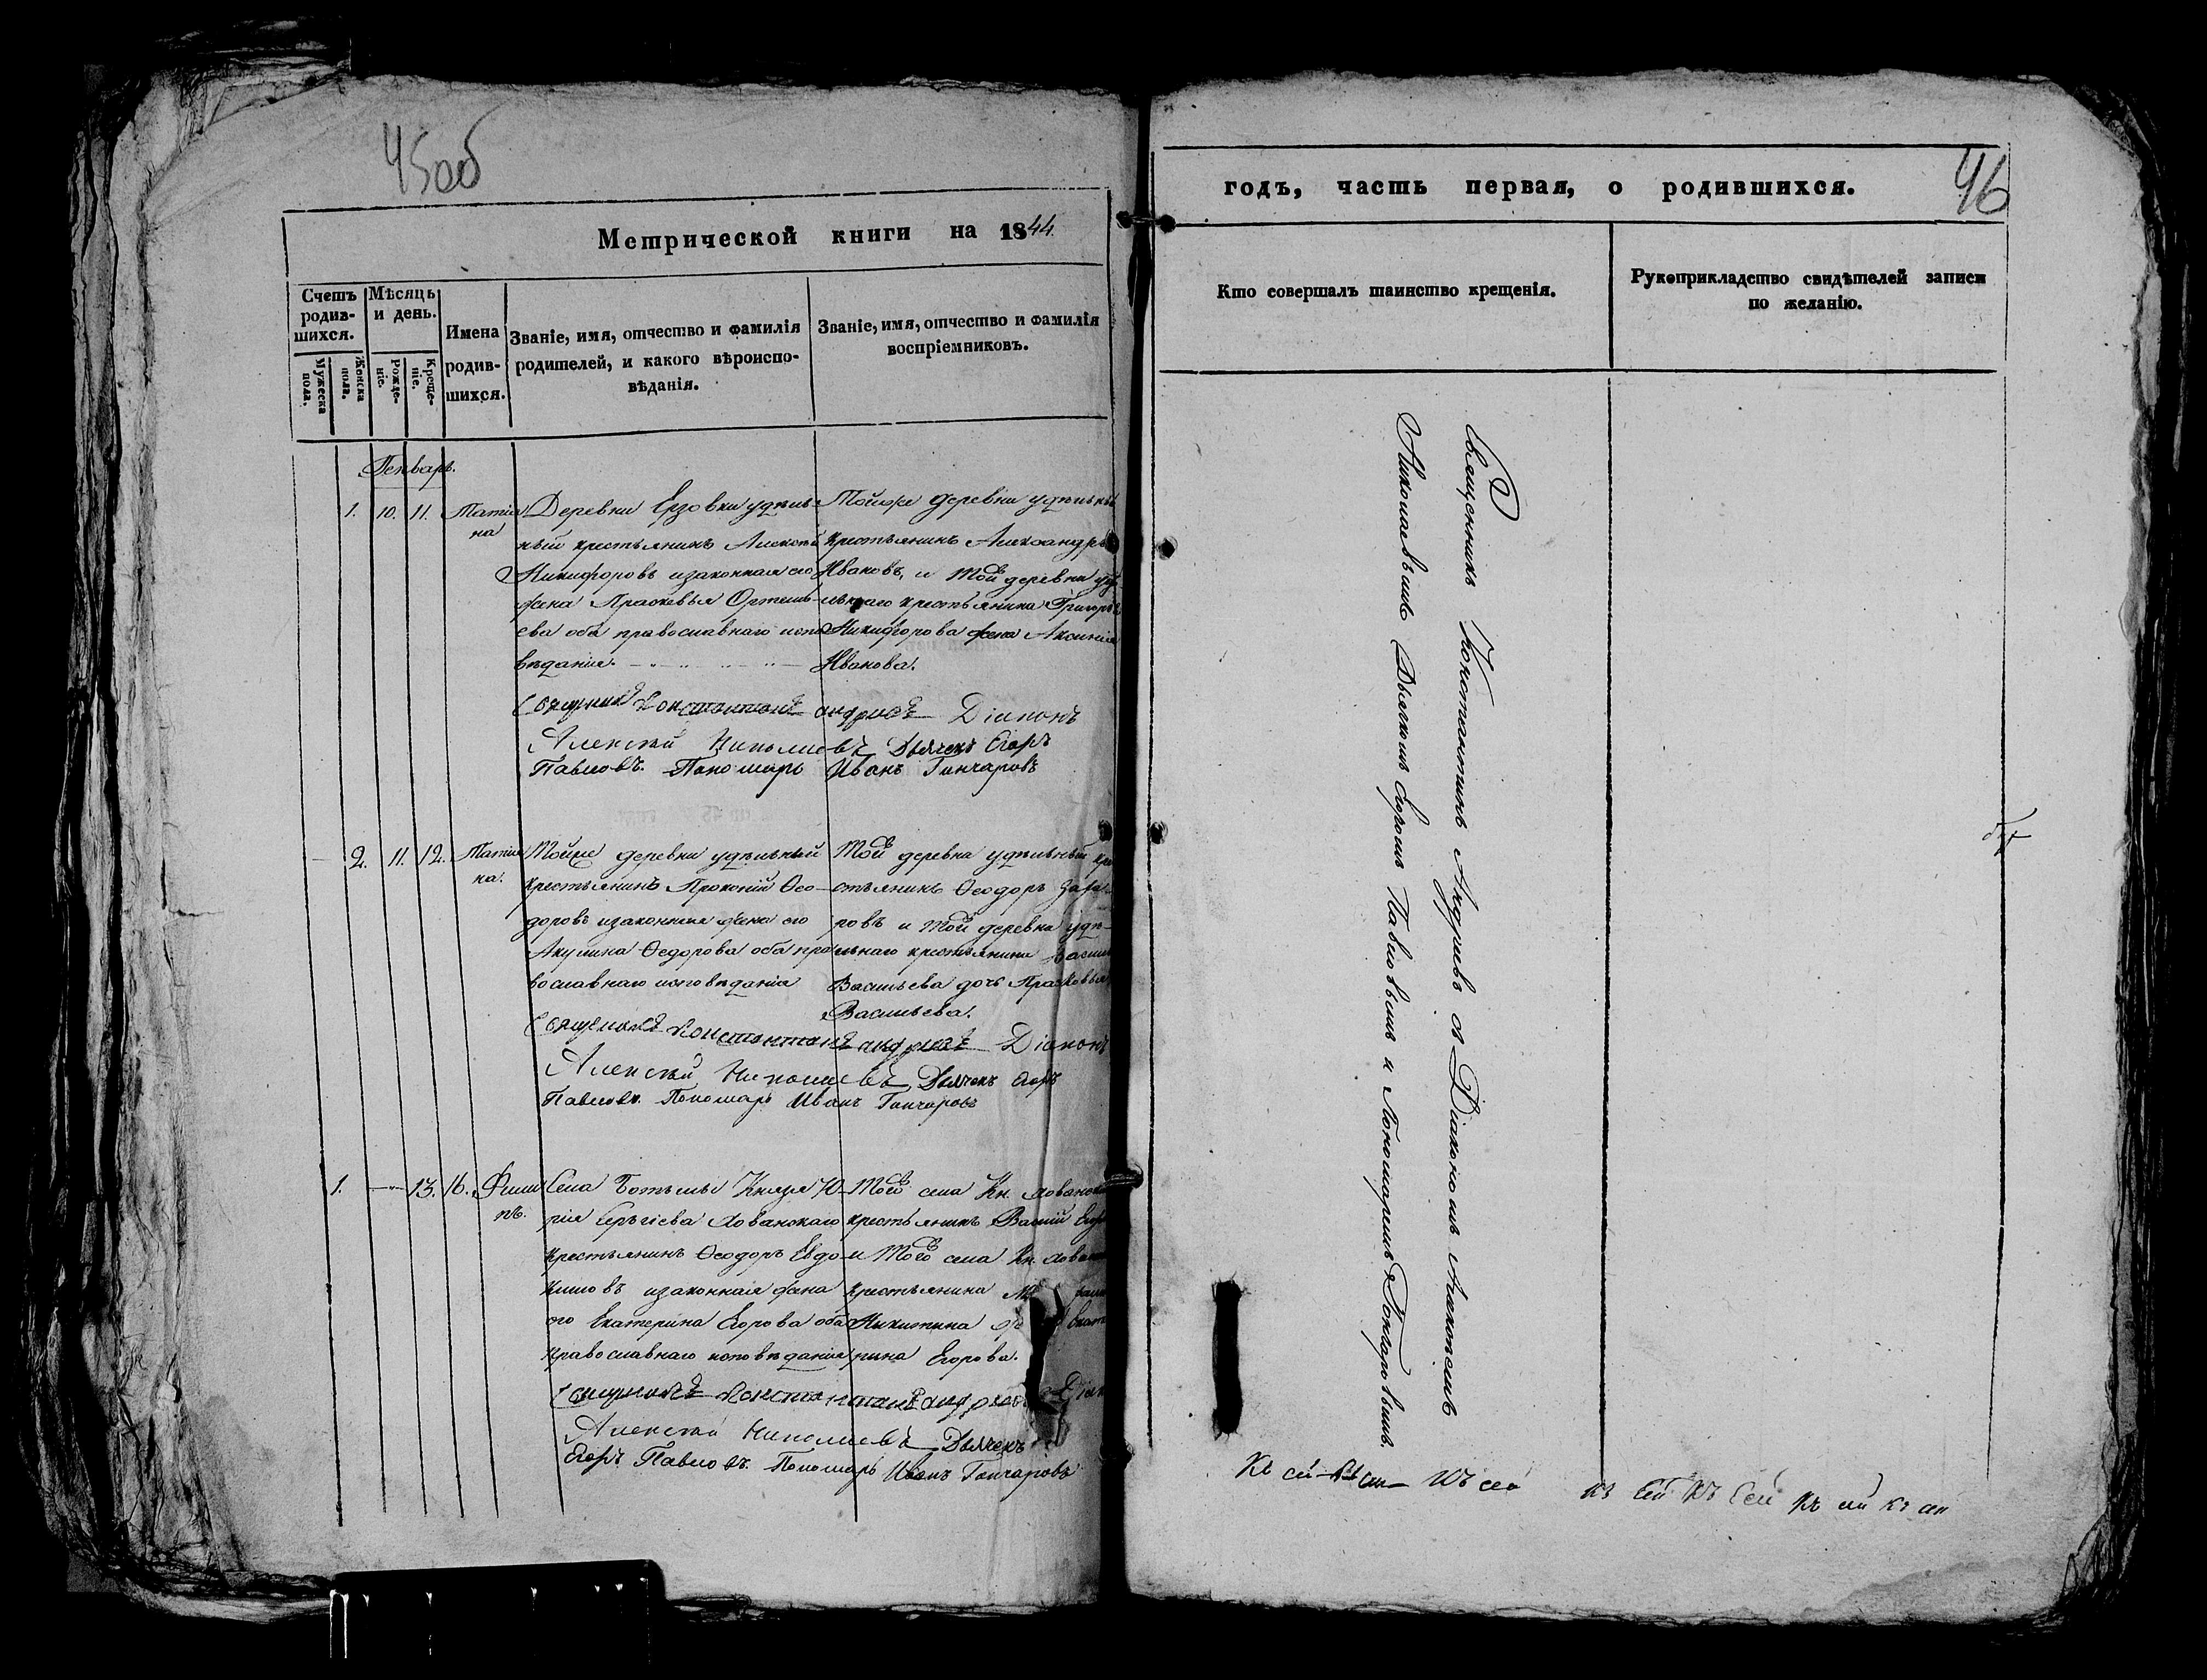 45об
Метрической книги на 1844.
Счетъ родив-шихся.
Мужеска пола.
Женска пола.
Мѣсяцъ и день.
Рожде-ніе.
Креще-ніе.
Имена родив-шихся.
Званіе, имя, отчество и фамилія
родителей, и какого вѣроиспо-
вѣданія.
Званіе, имя, отчество и фамилія
воспріемниковъ.
Генварь.
1. 10. 11. Татіа
на
Деревни Ерзовки удѣль-
ный крестьянинъ Алексѣй
Никифоровъ изаконная его
жена Прасковья Ортемь-
ева оба православнаго испо
вѣданія.
Тойже деревни удѣльный
крестьянинъ Александръ
Ивановъ, и той деревни удѣ
льнаго крестьянина Григорья
Никифорова жена Аксинія
Иванова.
Священникъ Константинъ Андреевъ Діаконъ
Алексѣй Николаевъ Дьячекъ Егоръ
Павловъ. Пономарь Иванъ Гончаровъ
2. 11. 12. Татіа
на.
Тойже деревни удѣльный
крестьянинъ Прокопій Ѳео-
доровъ изаконная жена его
Акулина Ѳедорова оба пра
вославнаго исповѣданія
Той деревни удѣльный кре
стьянинъ Ѳеодоръ
ровъ и той деревни удѣ-
льнаго крестьянина Васил
Васильева дочь Прасковья
Васильева.
Священникъ Константинъ Андреевъ Діаконъ
Алексѣй Николаевъ Дьячекъ Егоръ
Павловъ. Пономарь Иванъ Гончаровъ
1. 13. 16. Филип
пъ.
Села Ботьмы Князя Ю-
рія Сергіева Хованскаго
крестьянинъ Ѳеодоръ Евдо
кимовъ изаконная жена
его Екатерина Егорова оба
православнаго исповѣданія
Того села Кн. Хованска
крестьянинъ Василій Егор
и того села Кн. Хованс
крестьянина
Никитина Екате
рина Егорова.
Священникъ Константинъ Андреевъ Діак
Алексѣй Николаевъ Дьячекъ
Егоръ Павловъ. Пономарь Иванъ Гончаровъ
46
годъ, часть первая, о родившихся.
Кто совершалъ таинство крещенія.
Рукоприкладство свидѣтелей записи
по желанію.
Священникъ Константинъ Андреевъ съ Діакономъ Алексѣемъ
Николаевымъ Дьячкомъ Егоромъ Павловымъ и Пономаремъ Гончаровымъ.
Къ сей